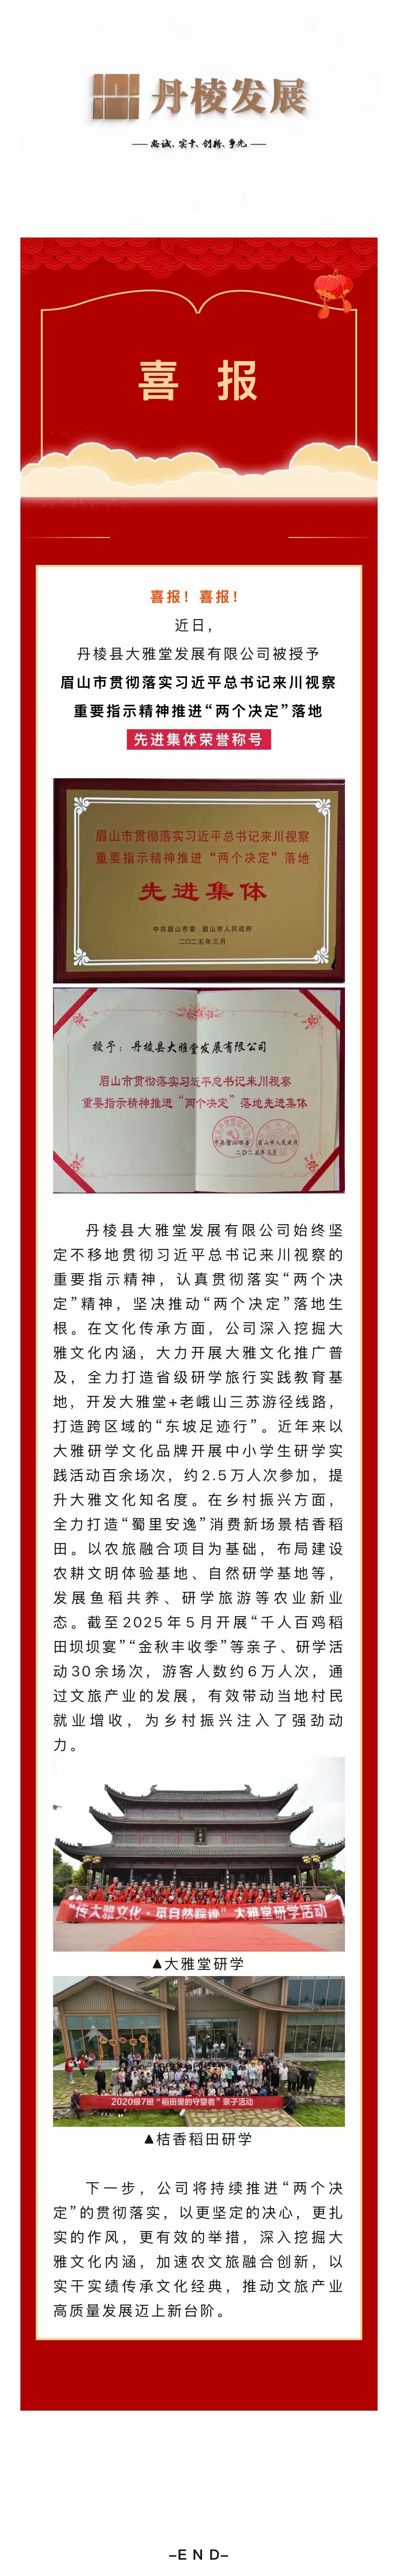 丹棱发展
忠诚、实干、创新、争先
喜 报
喜报！喜报！
近日，
丹棱县大雅堂发展有限公司被授予
眉山市贯彻落实习近平总书记来川视察
重要指示精神推进“两个决定”落地
先进集体荣誉称号
眉山市贯彻落实习近平总书记来川视察
重要指示精神推进“两个决定”落地
先进集体
中共眉山市委 眉山市人民政府
二〇二五年三月
授予：丹棱县大雅堂发展有限公司
眉山市贯彻落实习近平总书记来川视察
重要指示精神推进“两个决定”落地先进集体
中共眉山市委 眉山市人民政府
二〇二五年三月
丹棱县大雅堂发展有限公司始终坚
定不移地贯彻习近平总书记来川视察的
重要指示精神，认真贯彻落实“两个决
定”精神，坚决推动“两个决定”落地生
根。在文化传承方面，公司深入挖掘大
雅文化内涵，大力开展大雅文化推广普
及，全力打造省级研学旅行实践教育基
地，开发大雅堂+老峨山三苏游径线路，
打造跨区域的“东坡足迹行”。近年来以
大雅研学文化品牌开展中小学生研学实
践活动百余场次，约2.5万人次参加，提
升大雅文化知名度。在乡村振兴方面，
全力打造“蜀里安逸”消费新场景桔香稻
田。以农旅融合项目为基础，布局建设
农耕文明体验基地、自然研学基地等，
发展鱼稻共养、研学旅游等农业新业
态。截至2025年5月开展“千人百鸡稻
田坝坝宴”“金秋丰收季”等亲子、研学活
动30余场次，游客人数约6万人次，通
过文旅产业的发展，有效带动当地村民
就业增收，为乡村振兴注入了强劲动
力。
“传大雅文化·觅自然踪迹”大雅堂研学活动
▲大雅堂研学
2020级7班“稻田里的守望者”亲子活动
▲桔香稻田研学
下一步，公司将持续推进“两个决
定”的贯彻落实，以更坚定的决心，更扎
实的作风，更有效的举措，深入挖掘大
雅文化内涵，加速农文旅融合创新，以
实干实绩传承文化经典，推动文旅产业
高质量发展迈上新台阶。
–END–